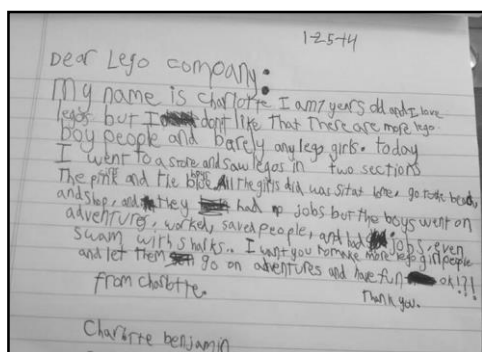 1-25-14
Dear Lego company:
My name is Charlotte I am 7 years old and I love
legos but I dont like that There are more lego
boy people and barely any lego girls. today
I went to a store and saw legos in two sections
The pink and the blue. All the girls did was sit at home, go to the beach,
and shop, and they had no jobs but the boys went on
adventures, worked, saved people, and had jobs, even
swam with sharks. I want you to make more lego girl people
and let them go on adventures and have fun ok!?!
from charlotte. Thank you.
Charlotte benjamin